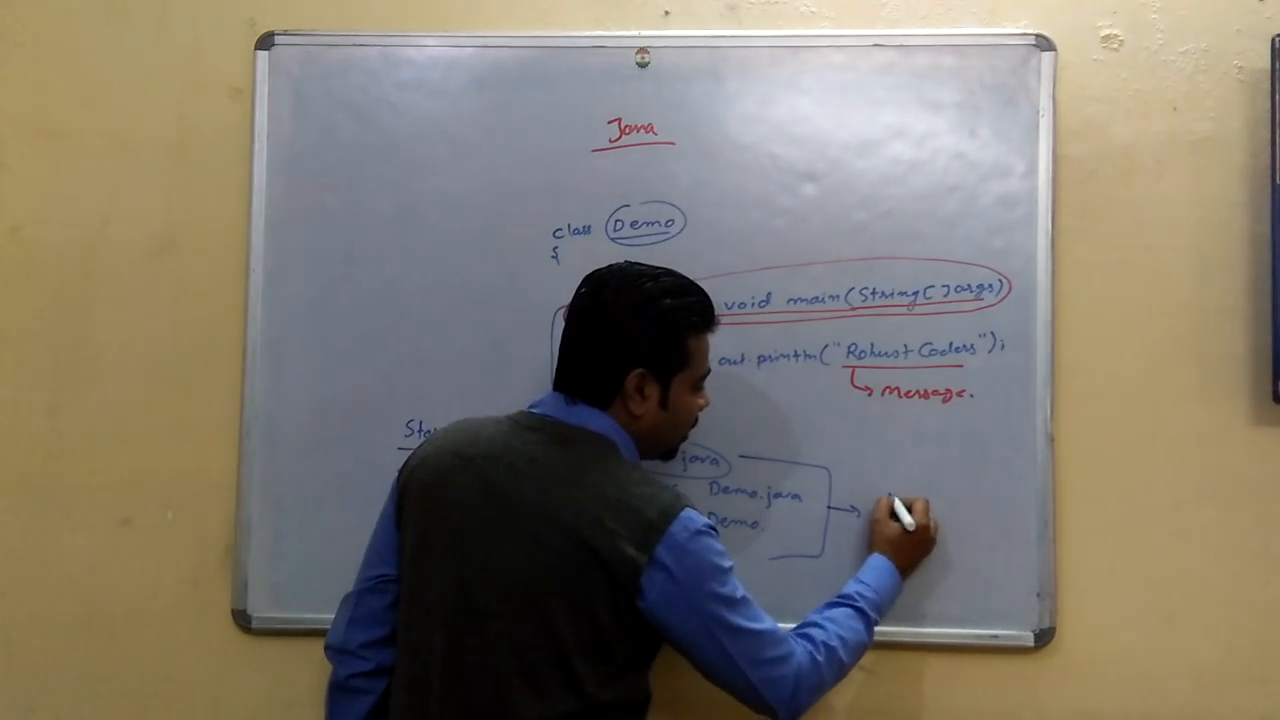 Java
class Demo
{
void main(String[] args)
out.println("Robust Coders");
Message.
java
Demo.java
Demo.